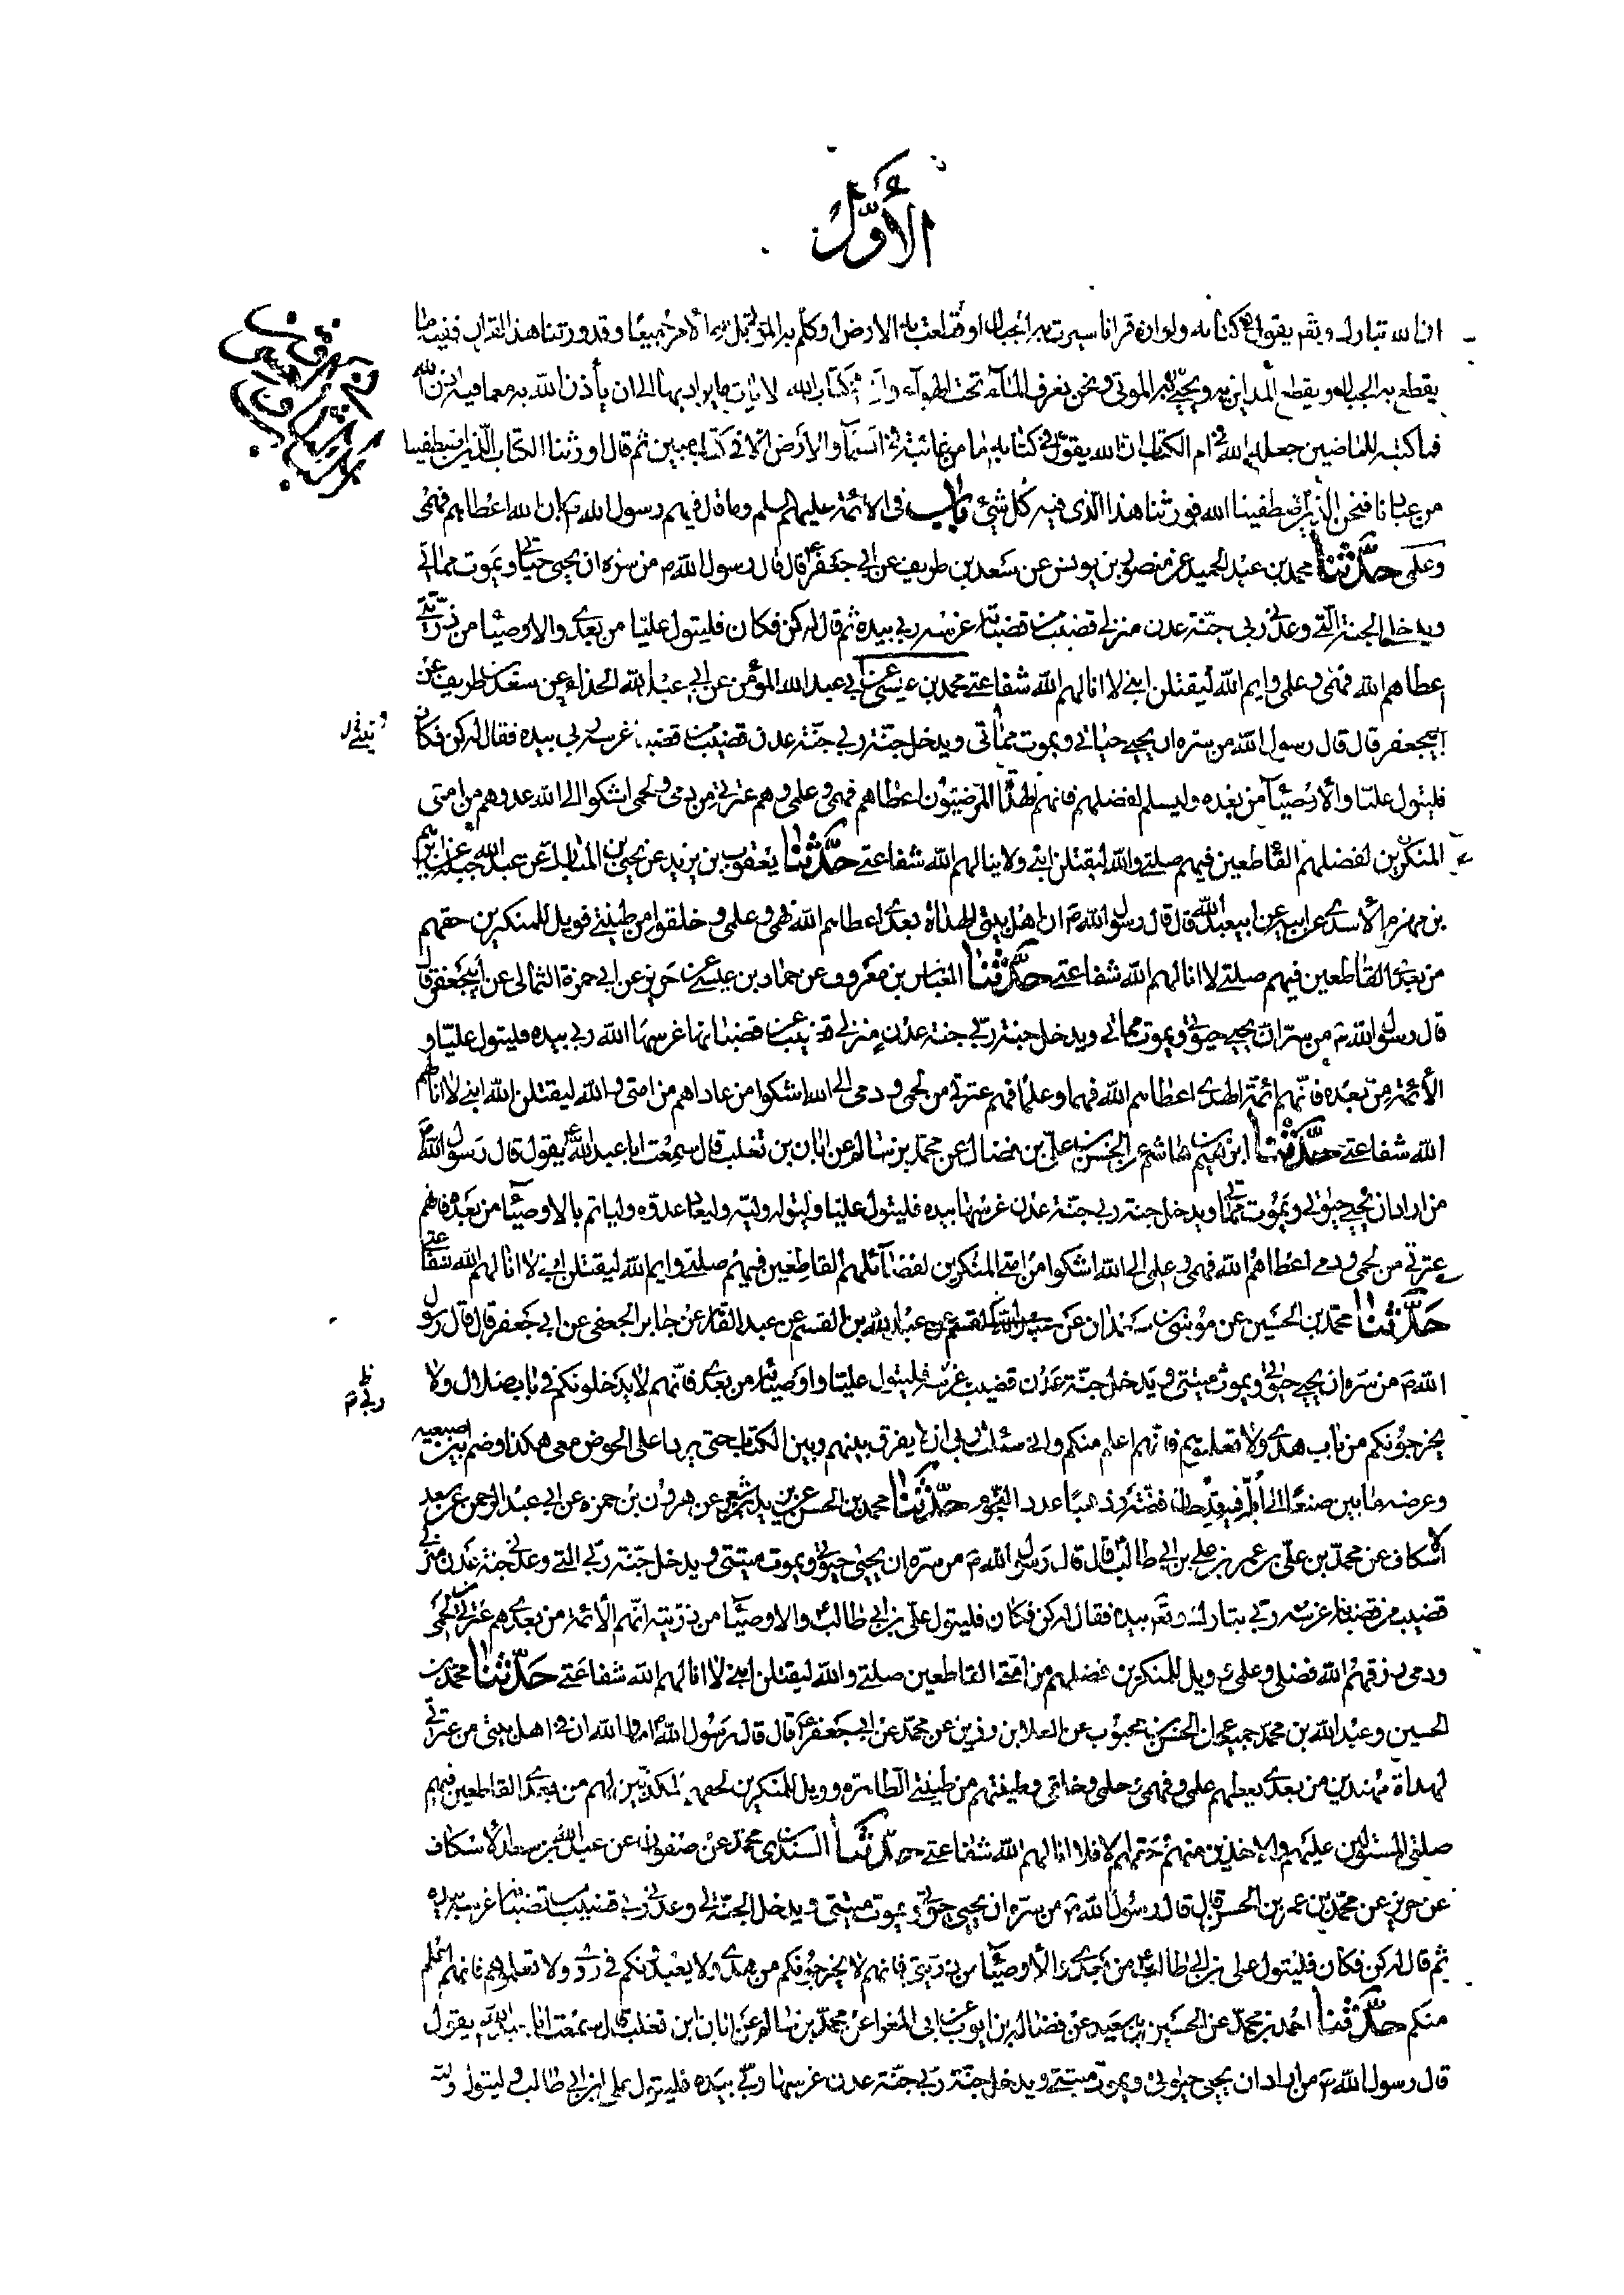 الأوّل
ان الله تبارك وتعم يقول في كتابه ولو ان قرانا سيرت به الجبال او قطعت به الارض او كلم به الموتى بل لله الامر جميعا وقد ورثنا هذا القران ففيه ما
يقطع به الجبال ويقطع المداين به ويحيى به الموتى ونحن نعرف الماء تحت الهواء وان في كتاب الله لايات ما يراد بها الى ان يأذن الله به مع ما فيه اذن الله
فما كتبه للماضين جعله الله في ام الكتاب ان الله يقول في كتابه ما من غائبة في السماء والأرض الا في كتاب مبين ثم قال اورثنا الكتاب الذين اصطفينا
من عبادنا فنحن الذين اصطفينا الله فورثنا هذا الذى فيه كل شئ باب في الائمة عليهم السلم وما قال فيهم رسول الله ص بان الله اعطاهم فهمى
وعلمى حدّثنا محمد بن عبد الحميد عن منصور بن يونس عن سعد بن طريف عن ابي جعفر ع قال قال رسول الله ص من سره ان يحيى حياتى ويموت مماتي
ويدخل الجنة التي وعدنى ربى جنّة عدن منزلى قضيب من قضبانه غرسه ربي بيده ثم قال له كن فكان فليتول عليا من بعدى والاوصيا من ذريتى
اعطاهم الله فهمى وعلمى وايم الله ليقتلن ابنى لا انالهم الله شفاعتى محمد بن عيسى عن ابي عبد الله المؤمن عن ابي عبد الله الحذاء عن سعد بن طريف عن
ابيجعفر قال قال رسول الله من سره ان يحيى حياتي ويموت مماتي ويدخل جنّة ربي جنّة عدن قضيب من قضبانه غرسه ربي بيده فقال له كن فكان
فليتول عليا والأوصيآ من بعده وليسلم لفضلهم فانهم الهداة المرضيّون اعطاهم فهمى وعلمى وهم عترتى من دمى ولحمى اشكوا الى الله عدوهم من امتى
المنكرين لفضلهم القاطعين فيهم صلتى والله ليقتلن ابنى ولا ينالهم الله شفاعتى حدّثنا يعقوب بن يزيد عن يحيى بن المبارك عن عبد الله جبلة عن ابراهيم
بن مهزم الأسدى عن ابيه عن ابيعبد الله قال قال رسول الله ص ان اهل بيتى الهداة بعدى اعطاهم الله فهمى وعلمى وخلقوا من طينتى فويل للمنكرين حقهم
من بعدى القاطعين فيهم صلتى لا انالهم الله شفاعتى حدّثنا العباس بن معروف عن حماد بن عيسى عن حريز عن ابي حمزة الثمالى عن ابيجعفر قال
قال رسول الله ص من سره ان يحيى حيوتى ويموت مماتى ويدخل جنة ربّي جنة عدن منزلى قضيب من قضبانها غرسها الله ربي بيده فليتول عليّا و
الأئمة من بعده فانّهم ائمة الهدى اعطاهم الله فهما وعلما فهم عترتى من لحمى ودمى الى الله اشكوا من عاداهم من امتى والله ليقتلن الله ابنى لا انالهم
الله شفاعتى حدّثنا ابراهيم بن هاشم عن الحسن بن على بن فضال عن محمد بن سالم عن ابان بن تغلب قال سمعت ابا عبد الله ع يقول قال رسول الله ص
من اراد ان يحيى حيوتي ويموت مماتى ويدخل جنة ربي جنّة عدن غرسها بيده فليتول عليا وليتول وليه وليعاد عدوّه وليأتم بالاوصيآ من بعده فانهم
عترتي من لحمى ودمى اعطاهم الله فهمى وعلمى الى الله اشكوا من امتى المنكرين لفضآئلهم القاطعين فيهم صلتى وايم الله ليقتلن ابنى لا انالهم الله شفاعتى
حدّثنا محمد بن الحسين عن موسى بن سعدان عن عبد الله بن القسم عن عبد القهار عن جابر الجعفى عن ابي جعفر قال قال رسول
الله ص من سره ان يحيى حيوتى ويموت ميتتى ويدخل جنّة عدن قضيب غرسه فليتول عليا واوصيائه من بعدى فانّهم لا يدخلونكم في باب ضلال ولا
يخرجونكم من باب هدى ولا تعلموهم فانهم اعلم منكم واني سئلت ربى ان لا يفرق بينهم وبين الكتاب حتى يردا على الحوض معى هكذا وضم بين اصبعيه
وعرضه ما بين صنعا الى ابلة فيه قدحان فضّة وذهبا عدد النجوم حدّثنا محمد بن الحسن عن يزيد شعر عن هرون بن حمزه عن ابي عبد الرحمن عن سعد
الاسكاف عن محمد بن علي بن عمر بن علي بن ابي طالب ع قال قال رسول الله ص من سره ان يحيى حيوتى ويموت ميتتى ويدخل جنّة ربى التى وعدنى جنة عدن منزلى
قضيب من قضبانه غرسه ربّي تبارك وتعم بيده فقال له كن فكان فليتول علي بن ابي طالب ع والاوصيآ من ذرّيته انّهم الأئمة من بعدى هم عترتى من لحمى
ودمى رزقهم الله فضلى وعلمى ويل للمنكرين فضلهم من امّتى القاطعين صلتى والله ليقتلن ابنى لا انالهم الله شفاعتى حدّثنا محمد بن
الحسين وعبد الله بن محمد جميعا عن الحسن بن محبوب عن العلا بن رزين عن محمد عن ابي جعفر ع قال قال رسول الله ص اما والله ان في اهل بيتى من عترتي
لهداة مهتدين من بعدى يعطيهم علمى وفهمى وحلمى وخلقى وطينتهم من طينتى الطاهره وويل للمنكرين لحقهم المكذّبين لهم من بعدى القاطعين فيهم
صلتى المستولين عليهم والاخذين منهم حقهم الا فلا انالهم الله شفاعتى حدّثنا السندى بن محمد عن صفوان عن عبد الله بن سعد الاسكاف
عن حريز عن محمد بن عمر بن الحسن قال قال رسول الله ص من سره ان يحيى حيوتى ويموت ميتتى ويدخل الجنّة التى وعدنى ربى قضيب من قضبانها غرسه بيده
ثم قال له كن فكان فليتول على بن ابي طالب ع من بعدى والأوصيآ من ذريّتى فانهم لا يخرجونكم من هدى ولا يعيدونكم في ردى ولا تعلموهم فانهم اعلم
منكم حدّثنا احمد بن محمد عن الحسين بن سعيد عن فضالة بن ايوب عن ابي المغرا عن محمد بن سالم عن ابان ابن تغلب قال سمعت ابا عبد الله ع يقول
قال رسول الله ص من اراد ان يحيى حيوتى ويموت ميتتى ويدخل جنّة ربى جنّة عدن غرسها ربّى بيده فليتول على ابن ابي طالب وليتول وليّه